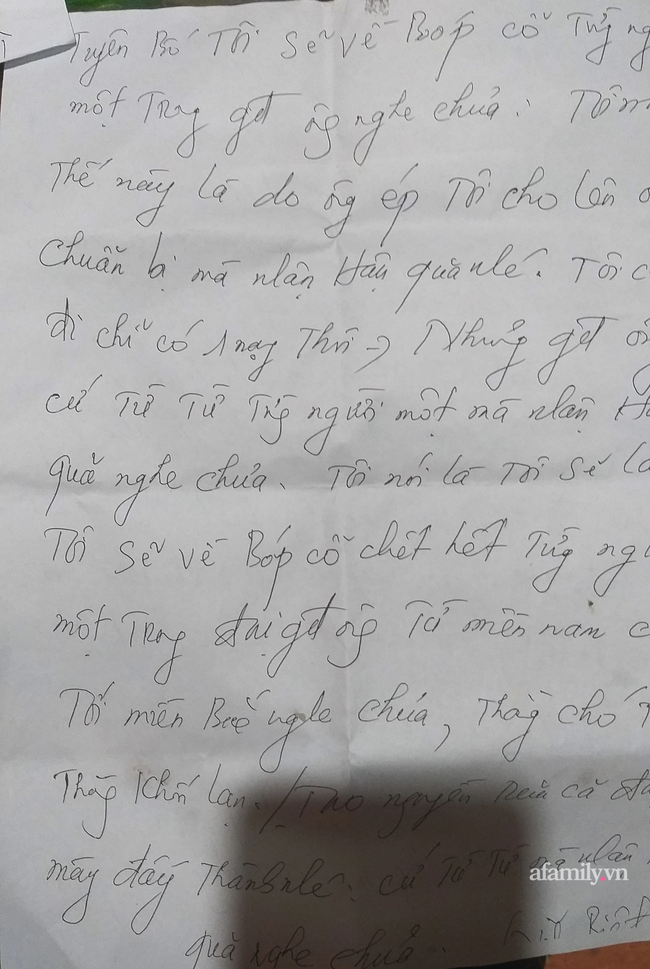 Tuyên Bố Tôi Sẽ Về Bóp cổ Từng ng
một Trong gđ ông nghe chưa. Tôi m
Thế này là do ông ép Tôi cho lên
Chuẩn bị mà nhận Hậu quả nhé. Tôi c
đi chỉ có 1 mạng Thôi → Nhưng gđ ôn
cứ Từ Từ Từng người một mà nhận H
quả nghe chưa. Tôi nói là Tôi Sẽ là
Tôi Sẽ Về Bóp cổ chết hết Từng ng
một Trong đại gđ ông Từ miền nam c
Tới miền Bắc nghe chưa, Thằng chó
Thằng Khốn nạn. Tao nguyền rủa cả
mày đấy Thành nhé. cứ Từ Từ mà nhận
quả nghe chưa.
afamily.vn